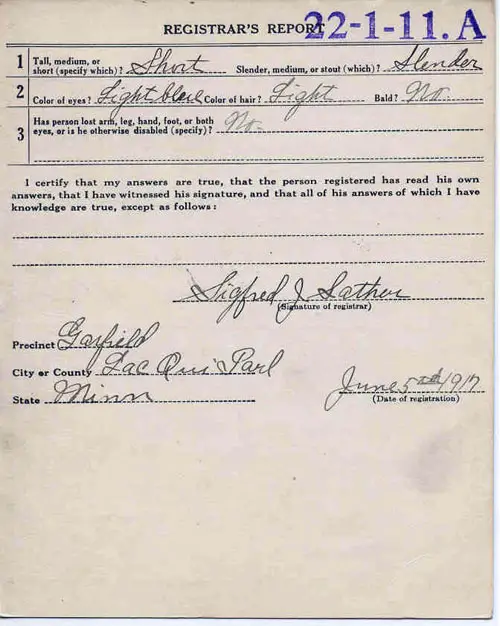 REGISTRAR'S REPORT 22-1-11. A
1 Tall, medium, or short (specify which)? Short Slender, medium, or stout (which)? Slender
2 Color of eyes? Light blue Color of hair? Light Bald? No
3 Has person lost arm, leg, hand, foot, or both eyes, or is he otherwise disabled (specify)? No-
I certify that my answers are true, that the person registered has read his own
answers, that I have witnessed his signature, and that all of his answers of which I have
knowledge are true, except as follows:
Sigfred J Sather
(Signature of registrar)
Precinct Garfield
City or County Lac Qui Parl
State Minn
June 5th 1917
(Date of registration)